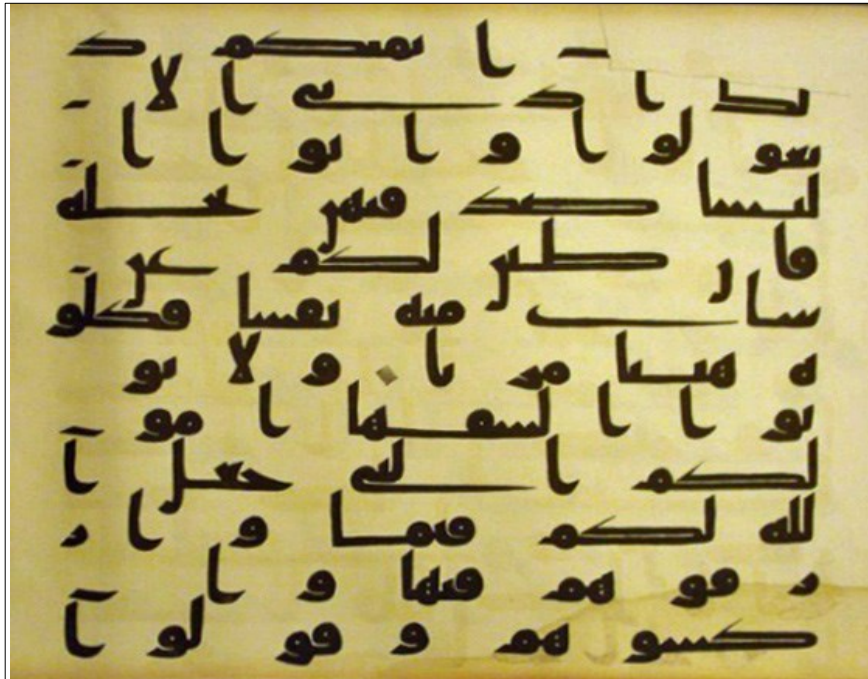 ت ايمنكم ذ
لك ادنى الا ت
عولوا واتوا ا
لنسا صدقتهن نحله
فان طبن لكم عن
شاى منه نفسا فكلو
ه هنيا مريا ولا تو
توا السفها امو
لكم التى جعل ا
لله لكم قيما وار
زقوهم فيها وا
كسوهم وقولوا